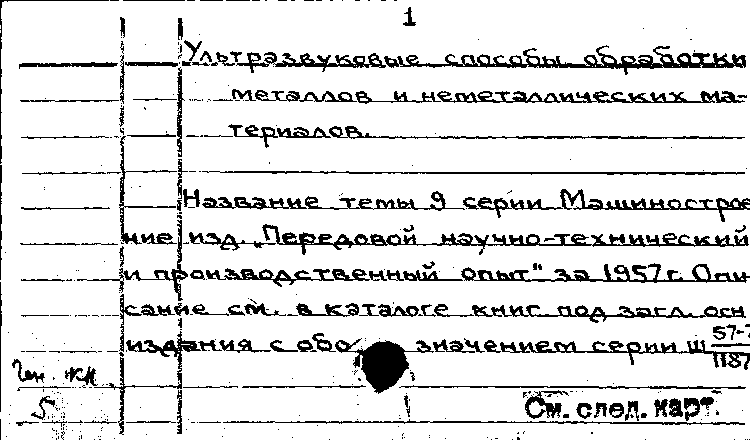 1
Ультразвуковые способы обработки
металлов и неметаллических ма-
териалов.
Название темы 9 серии Машинострое
ние изд. „Передовой научно-технический
и производственный опыт" за 1957 г. Опи
сание см. в каталоге книг под загл. осн
издания с обозначением серии Ш 57-7
1187
Ген. кл.
5
См. след. карт.